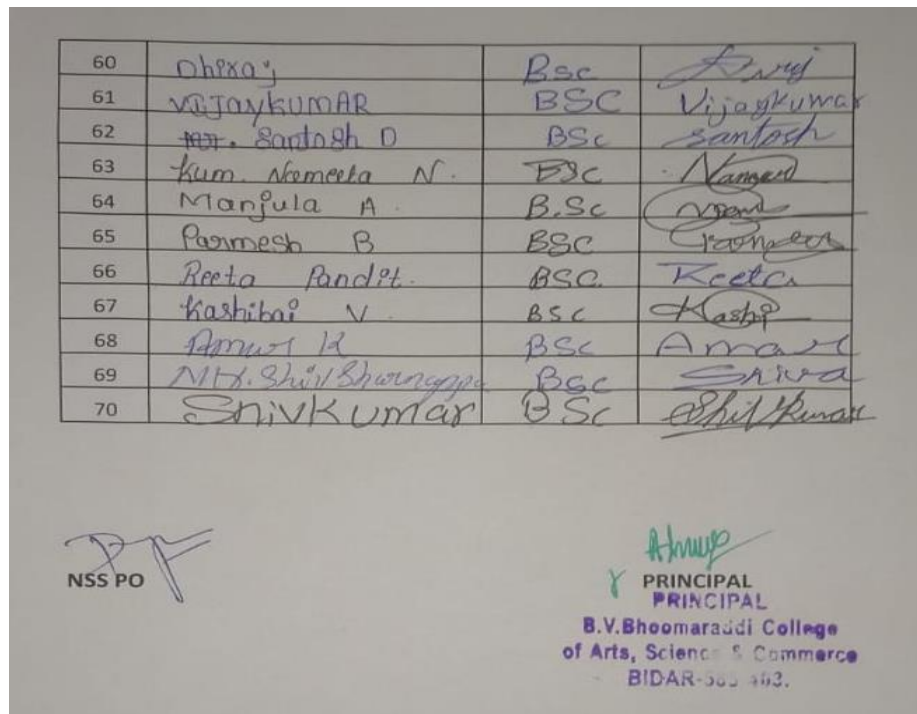 60 Dhiraj Bsc
61 VIJAYKUMAR BSC Vijaykumar
62 Santosh D BSc Santosh
63 Kum. Nameeta N. BSC
64 Manjula A. B.Sc
65 Parmesh B BSC
66 Reeta Pandit. BSC. Reeta
67 Kashibai V BSC Kashi
68 Amar K BSc Amar
69 BSc Shiva
70 ShivKumar BSc Shivkumar
NSS PO
PRINCIPAL
PRINCIPAL
B.V.Bhoomaraddi College
of Arts, Science & Commerce
BIDAR-585 403.